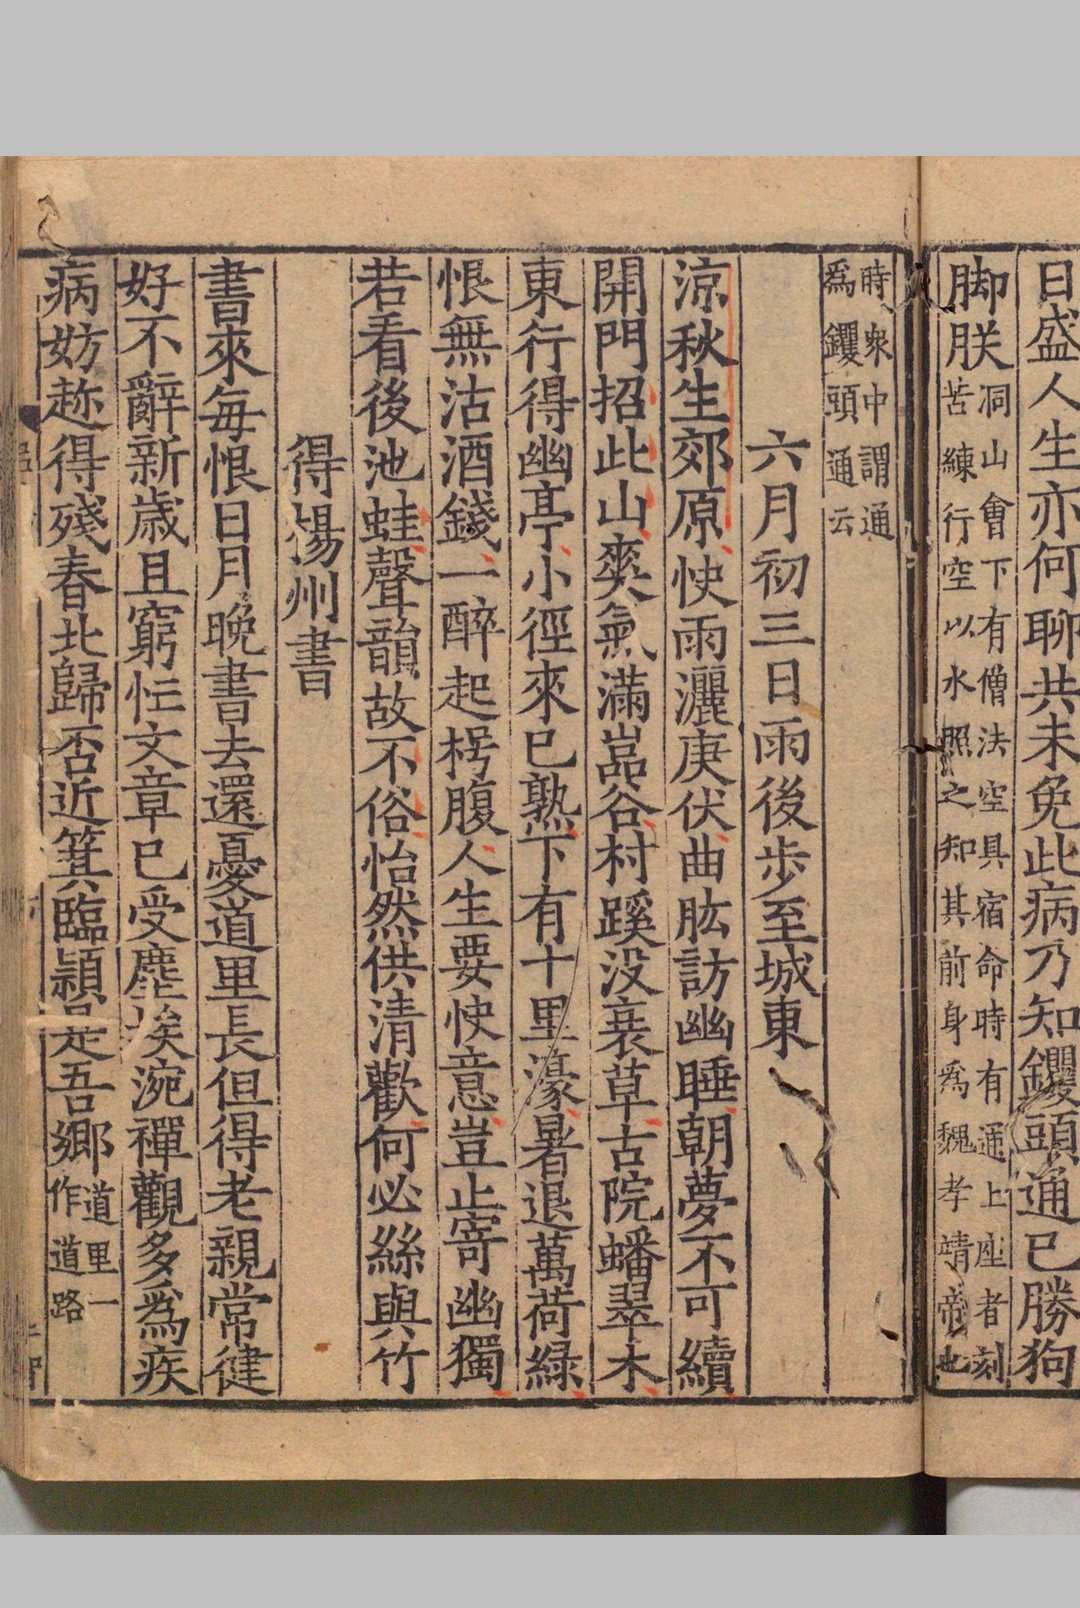 日盛人生亦何聊共未免此病乃知钁頭通已勝狗
脚朕洞山會下有僧法空具宿命時有通上座者刻
苦練行空以水照之知其前身爲魏孝靖帝也
時衆中謂通
爲钁頭通云
六月初三日雨後步至城東
涼秋生郊原快雨灑庚伏曲肱訪幽睡朝夢不可續
開門招此山爽氣滿嵓谷村蹊没衰草古院蟠翠木
東行得幽亭小徑來已熟下有十里濠暑退萬荷綠
恨無沽酒錢一醉起枵腹人生要快意豈止寄幽獨
若看後池蛙聲韻故不俗怡然供清歡何必絲與竹
得楊州書
書來每恨日月晚書去還憂道里長但得老親常健
好不辭新歲且窮忙文章已受塵埃涴禪觀多爲疾
病妨趂得殘春北歸否近箕臨潁是吾鄉道里一
作道路